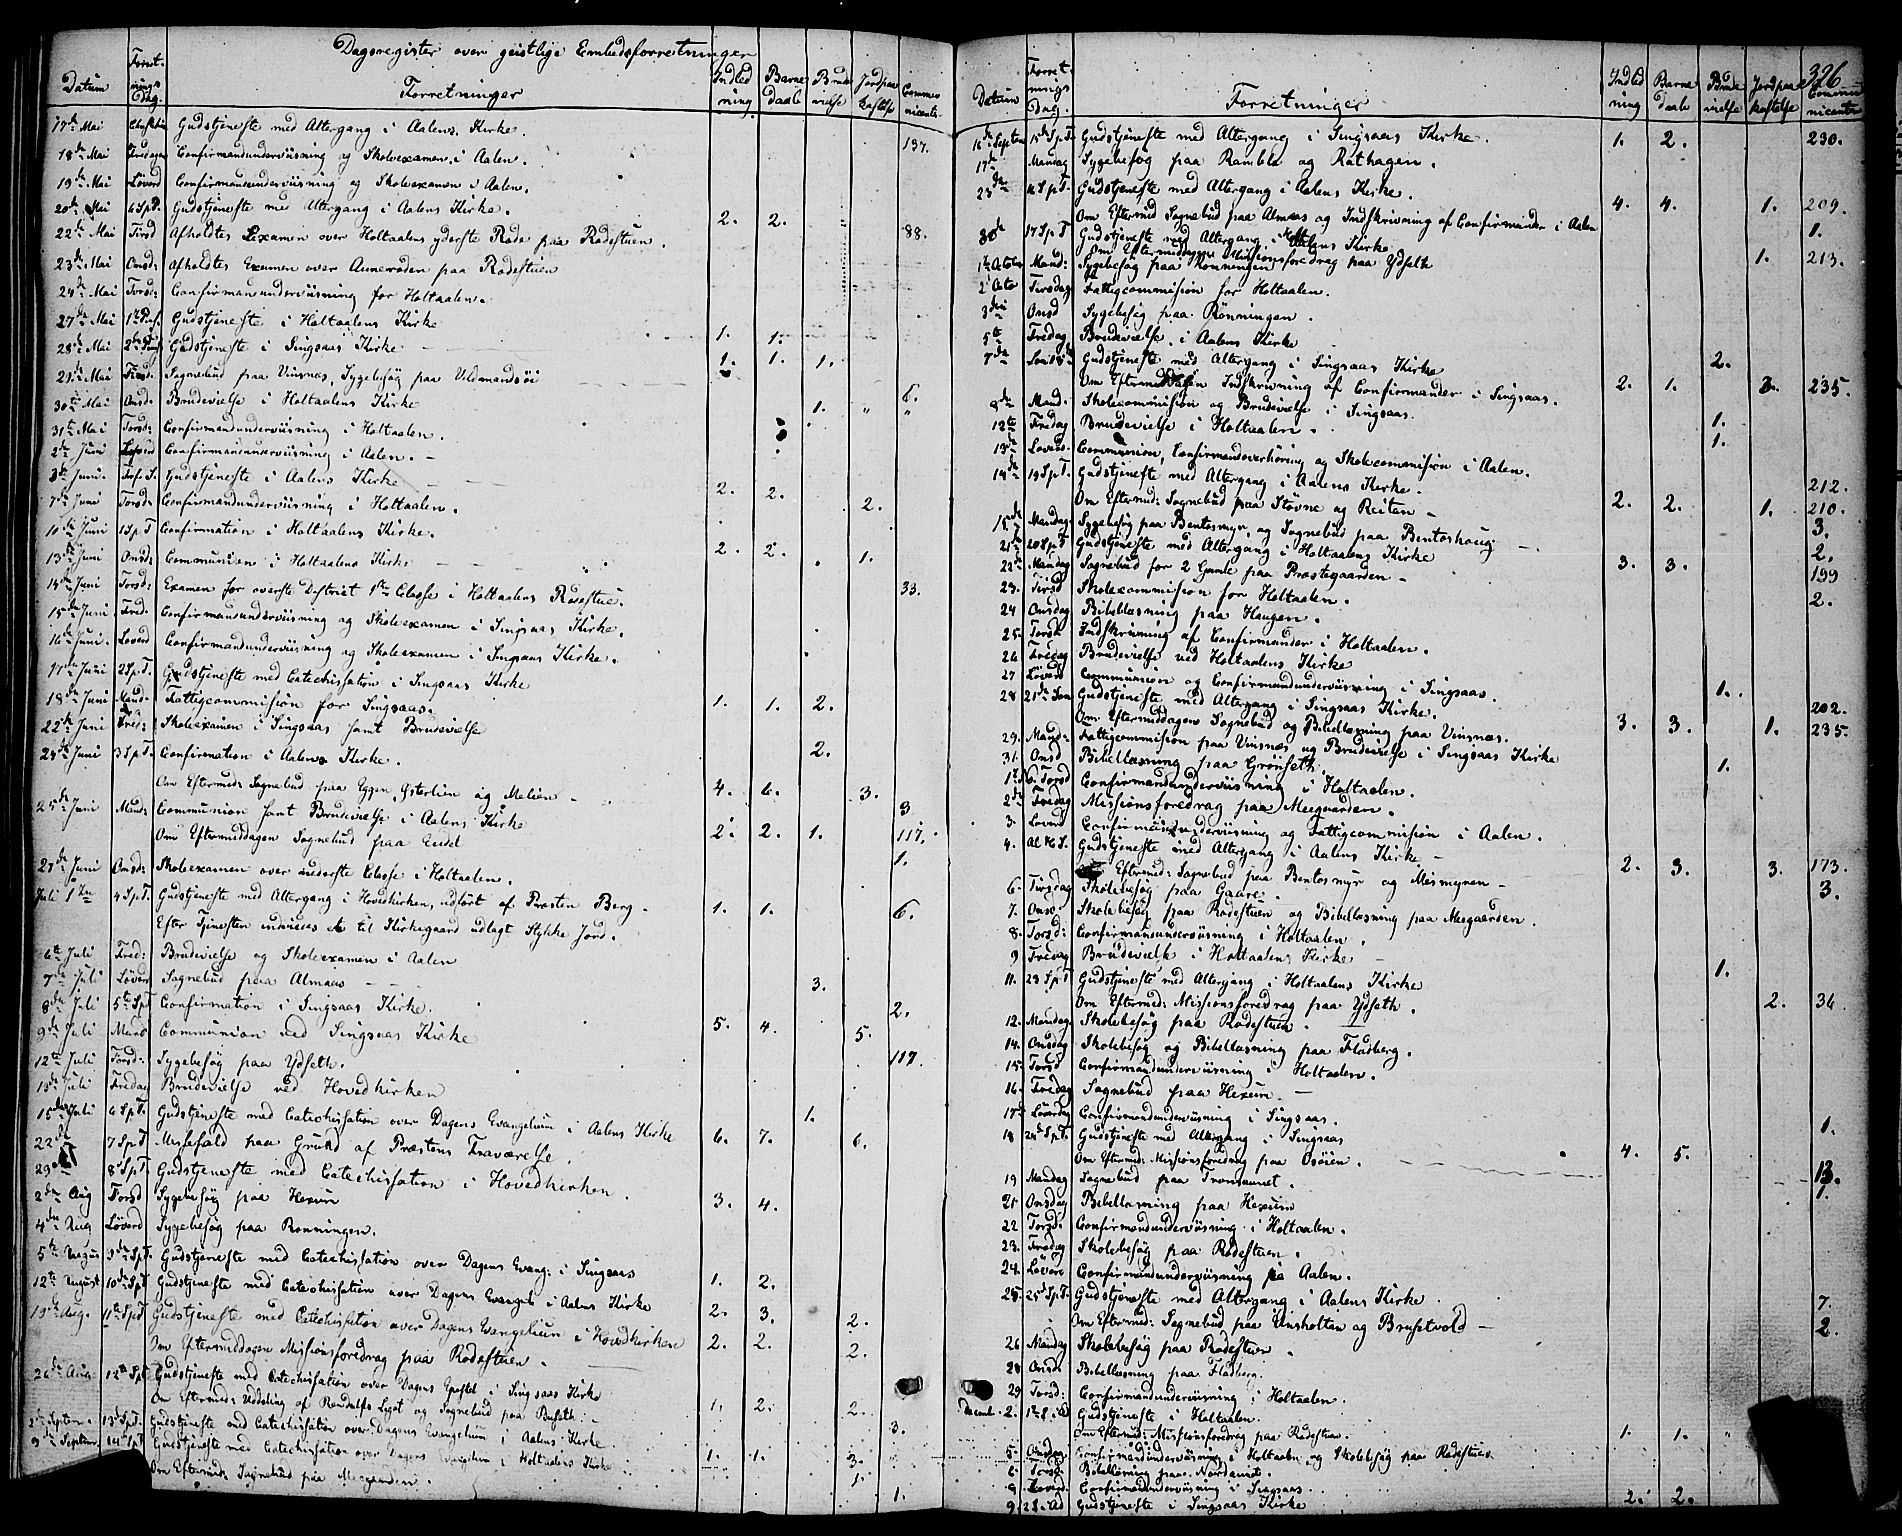 Dagsregister over geistlige Embedsforretninger
Datum Forretnings Dag. Forretninger Indledning Barnedaab Brudevielse Jordpaakastelse Communicanter
17de Mai Gudstjeneste med Altergang i Aalens Kirke. 137.
18de Mai Fredagen Confirmandundervisning og Skoleexamen i Aalen.
19de Mai Löverd Confirmandundervisning og Skoleexamen i Aalen.
20de Mai 6 S.p.P. Gudstjeneste med Altergang i Aalens Kirke. 2. 2. 88.
22de Mai Tirsd Afholdtes Examen over Holtaalens yderste Rode paa Rodestuen.
23de Mai Onsd: Afholdtes Examen over Auneroden paa Rodestuen
24de Mai Torsd: Confirmandundervisning for Holtaalen.
27de Mai 1ste Pins. Gudstjeneste i Holtaalens Kirke 1. 1.
28de Mai 2den Pins Gudstjeneste i Singsaas Kirke 1. 1. 1.
29de Mai Tirsd. Sognebud paa Vinsnes, Sygebesög paa Vildmandsöi 6.
30te Mai Onsd. Brudevielse i Holtaalens Kirke 1. " "
31te Mai Torsd: Confirmandundervisning i Holtaalen.
2den Juni Löverd Confirmandundervisning i Aalen.
3die Juni. Tref. S. Gudstjeneste i Aalens Kirke 2. 2. 2.
7de Juni Torsd: Confirmandundervisning i Holtaalen.
10de Juni 1 S.p.T Confirmation i Holtaalens Kirke. 2. 2. 1.
13de Juni Onsd: Communion i Holtaalens Kirke 33.
14de Juni Torsd: Examen for överste Distriet 1ste Classe i Holtaalens Rodestue.
15de Juni Fred. Confirmandundervisning og Skoleexamen i Singsaas Kirke.
16de Juni. Löverd Confirmandundervisning og Skoleexamen i Singsaas Kirke.
17de Juni 2 S.p.T. Gudstjeneste med Catechisation i Singsaas Kirke 1. 1. 2.
18de Juni Mand. Fattigcommision for Singsaas.
22de Juni Fred: Skoleexamen i Singsaas samt Brudevielse 2.
24de Juni 3 S.p.T. Confirmation i Aalens Kirke. 4. 6. 3.
Om Eftermid: Sognebud paa Eggen, Österlien og Melien 3.
25de Juni Mand: Communion samt Brudevielse i Aalens Kirke 2. 2. 1. 117.
Om Eftermiddagen Sognebud paa Endal 1.
27de Juni Onsd: Skoleexamen over nederste Classe i Holtaalen.
Juli 1ste 4 S.p.T. Gudstjeneste med Altergang i Hovedkirken, udfört af Præsten Berg. 1. 1. 6.
Efter Tjenesten indviedes et til Kirkegaard udlagt Stykke Jord.
6te Juli Fred: Brudevielse og Skoleexamen i Aalen 3.
7de Juli Löverd Sognebud paa Almaas 2.
8de Juli 5te S.p.T Confirmation i Singsaas Kirke. 5. 4. 5.
9de Juli Mand Communion ved Singsaas Kirke 117.
12te Juli Torsd: Sygebesög paa Ydseth.
13de Juli Fredag Brudevielse ved Hovedkirken 1.
15de Juli 6 S.p.T. Gudstjeneste med Catechisation over Dagens Evangelium i Aalens Kirke 6. 7. 6.
22de 7 S.p.T Messefald paa Grund af Præstens Fraværelse.
29de 8 S.p.T Gudstjeneste med Catechisation i Hovedkirken. 3. 4.
2den Aug Torsd Sygebesög paa Hexum
4de Aug Löverd Sygebesög paa Rönningen.
5te August 9de S.p.T. Gudstjeneste med Catechisation over Dagens Evang: i Singsaas 1. 2.
12te August 10de S.p.T Gudstjeneste med Catechisation over Dagens Evangel: i Aalens Kirke 2. 3. 2.
19de Aug. 11te S.p.T Gudstjeneste med Catechisation over Dagens Evangelium i Hovedkirken 2. 2. 2.
Om Eftermiddagen Missionsforedrag paa Rodestuen.
26de Aug 12te S.p.T Gudstjeneste med Catechisation over Dagens Epistel i Singsaas Kirke 1. 2. 2.
Om Eftermid: Uddeling af Legat og Sognebud paa Buseth. 3.
2den Septem. 13 S.p.T. Gudstjeneste med Catechisation over Dagens Evangelium i Aalens Kirke 1. 1. 3.
9de Septem 14de S.p.T Gudstjeneste med Catechisation over Dagens Evangelium i Holtaalens Kirke 1.
Om Eftermid: Sognebud paa Moegaarden. 1.
326
Datum Forretnings Dag. Forretninger Indledning Barnedaab Brudevielse Jordpaakastelse Communicanter
16de Septem 15de S.p.T. Gudstjeneste med Altergang i Singsaas Kirke 1. 2. 230.
17de Mandag Sygebesög paa Ramblo og Rathagen.
23de 16 S.p.T. Gudstjeneste med Altergang i Aalens Kirke. 4. 4. 1. 209.
Om Eftermid Sognebud paa Almaas og Indskrivning af Confirmander i Aalen 1.
30de 17 S.p.T Gudstjeneste med Altergang i Holtaalens Kirke 1. 213.
Om Eftermiddagen Missionsforedrag paa Ydseth
1ste October Mand: Sygebesög paa Rönningen
2 Octo Tirsdag Fattigcommision for Holtaalen.
3die Onsd Sygebesög paa Rönningen.
5te Fredag Brudevielse i Aalens Kirke 2.
7de Gudstjeneste med Altergang i Singsaas Kirke 2. 1. 2. 235.
Om Eftermiddagen Indskrivning af Confirmander i Singsaas.
8de Mand. Skolecommision og Brudevielse i Singsaas. 1.
12te Fredag Brudevielse i Holtaalen. 1.
13de Löverd: Communion, Confirmandoverhöring og Skolecommision i Aalen. 212.
14de 19 S.p.T. Gudstjeneste med Altergang i Aalens Kirke. 2. 2. 1. 210.
Om Eftermid: Sognebud paa Stövne og Reitan 3.
15de Mandag Sygebesög paa Bentosmyr, og Sognebud paa Bentoshoug 2.
21de 20 S.p.T Gudstjeneste med Altergang i Holtaalens Kirke 3. 3. 199
22de Mandag Sognebud for 2 Gamle paa Præstegaarden 2.
23. Tirsd Skolecommision for Holtaalen.
24 Onsdag Bibellæsning paa Haugen.
25. Torsd Indskrivning af Confirmander i Holtaalen.
26 Fredag Brudevielse ved Holtaalens Kirke 1.
27 Löverd Communion og Confirmandundervisning i Singsaas. 202.
28 21de Son Gudstjeneste med Altergang i Singsaas Kirke. 3. 3. 1. 235.
Om Eftermiddagen Sognebud og Bibellæsning paa Vinsnes.
29. Mand: Fattigcommision paa Vinsnes og Brudevielse i Singsaas Kirke 1.
31. Onsd Bibellæsning paa Grönseth
1ste Nov. Torsd Confirmandundervisning i Holtaalen.
2de Fredag Missionsforedrag paa Moegaarden.
3. Löverd Confirmandundervisning og Fattigcommision i Aalen.
4. Al. H. S. Gudstjeneste med Altergang i Aalens Kirke 2. 3. 3. 173.
Eftermid: Sognebud paa Bentosmyr og Mosmyren 3.
6. Tirsdag Skolebesög paa Gaare.
7. Onsd. Skolebesög paa Rodestuen og Bibellæsning paa Moegaarden.
8. Torsd: Confirmandundervisning i Holtaalen.
9 Fredag Brudevielse i Holtaalens Kirke 1.
11. 23 S.p.T Gudstjeneste med Altergang i Holtaalens Kirke 2. 36.
Om Eftermed: Missionsforedrag paa Ydseth.
12. Mandag. Skolebesög paa Rodestuen.
14. Onsdag Skolebesög og Bibellæsning paa Fladberg.
15. Torsd Confirmandundervisning i Holtaalen.
16. Fredag Sognebud paa Hexum. 1.
17. Löverdag Confirmandundervisning i Singsaas.
18 24de S.p.T. Gudstjeneste med Altergang i Singsaas 4. 5. 13.
Om Eftermid: Missionsforedrag paa Osöien.
19 Mandag Sognebud paa 1.
21 Onsdag Bibellæsning paa Hexum
22 Torsd. Confirmandundervisning i Holtaalen.
23. Fredag Skolebesög paa Rodestuen.
24. Löverd Confirmandundervisning i Aalen.
25. 25de S.p.T. Gudstjeneste med Altergang i Aalens Kirke 7.
Om Eftermed: Sognebud paa Unsholtan og Brusetvold 2.
26 Mandag Skolebesög paa Rodestuen.
28 Onsd. Bibellæsning paa Fladberg.
29 Torsd: Confirmandundervisning i Holtaalen.
Decemb. 2. 1ste S. i Ad Gudstjeneste i Holtaalen. 1. 1.
Om Eftermid: Missionsforedrag paa Rodestuen.
5. Onsdag Confirmandundervisning i Holtaalen og Skolebesög paa Rodestuen
6. Torsd Bibellæsning paa Nordaunet.
8 Löverd. Confirmandundervisning i Singsaas.
9. 2 S. Ad Gudstjeneste i Singsaas Kirke 2. 2.